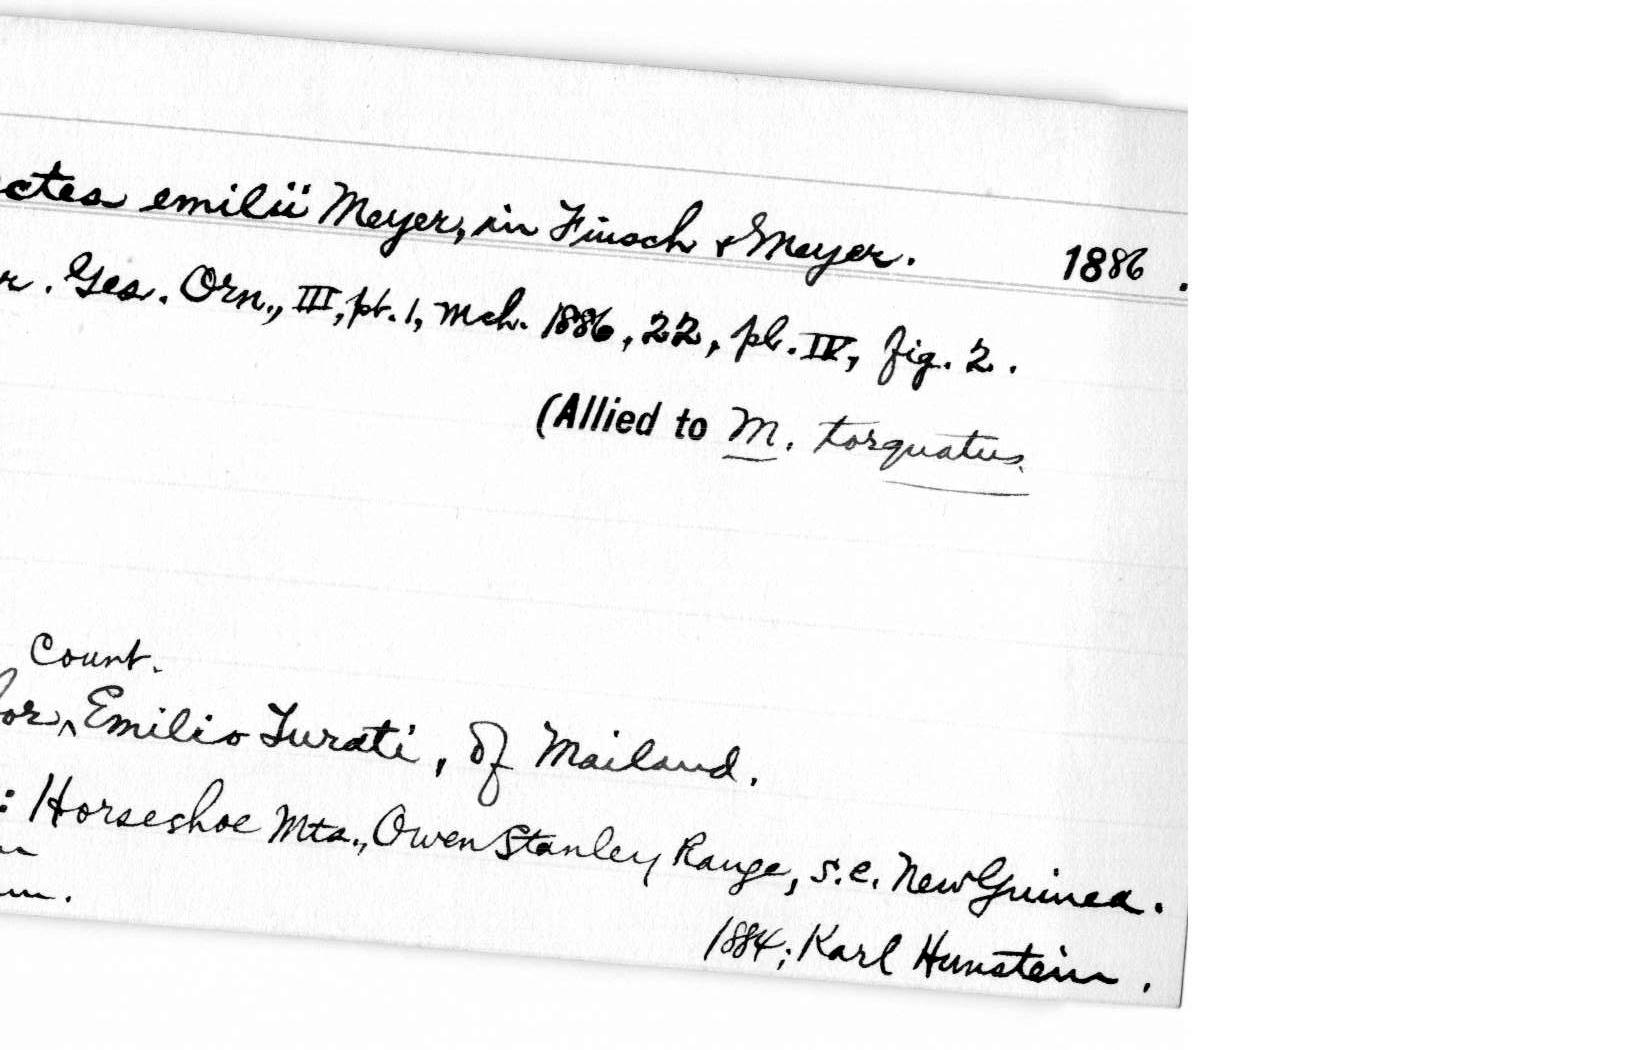 ctes emilii Meyer, in Finsch & Meyer. 1886.
r. Ges. Orn., III, pt. 1, Mch. 1886, 22, pl. IV, fig. 2.
(Allied to M. torquatus.
Count.
for, Emilio Turati, of Mailand.
: Horseshoe Mts., Owen Stanley Range, s.e. New Guinea.
1884; Karl Hunstein.